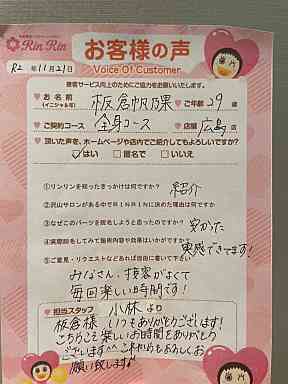 RinRin
お客様の声
Voice Of Customer
R2年11月21日
接客サービス向上のためにご協力をお願いいたします。
お名前
(イニシャル可)
板倉帆乃果
ご年齢 29歳
ご契約コース
全身コース
店舗 広島店
頂いた声を、ホームページや店内でご紹介してもよろしいですか?
はい 匿名で いいえ
①リンリンを知ったきっかけは何ですか?
紹介
②沢山サロンがある中でRINRINに決めた理由は何ですか
③なぜこのパーツを脱毛しようと思ったのですか?
安かった
④実際脱毛をしてみて施術内容や効果はいかがですか?
実感できてます!
⑤ご意見・リクエストなどあれば自由に書いて下さい
みなさん、接客がよくて
毎回楽しい時間です!
担当スタッフ
小林より
板倉様 いつもありがとうございます!
こちらこそ楽しいお時間をありがとう
ございます^^ これからもよろしくお
願い致します